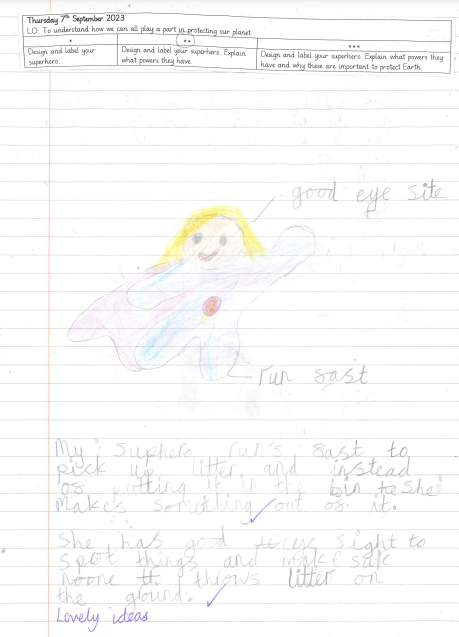 Thursday 7th September 2023
LO: To understand how we can all play a part in protecting our planet
* ** ***
Design and label your superhero.
Design and label your superhero. Explain what powers they have.
Design and label your superhero. Explain what powers they have and why these are important to protect Earth.
good eye site
run sast
My suphero run's sast to
pick up litter and instead
os putting it in the bin she
makes something out os it.
She has good eye sight to
spot things and make sure
noone throws litter on
the ground.
Lovely ideas